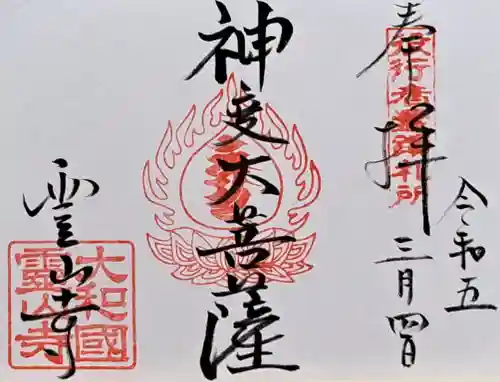 奉拝
役行者霊蹟札所
令和五
三月四日
神変大菩薩
霊山寺
大和國
靈山寺